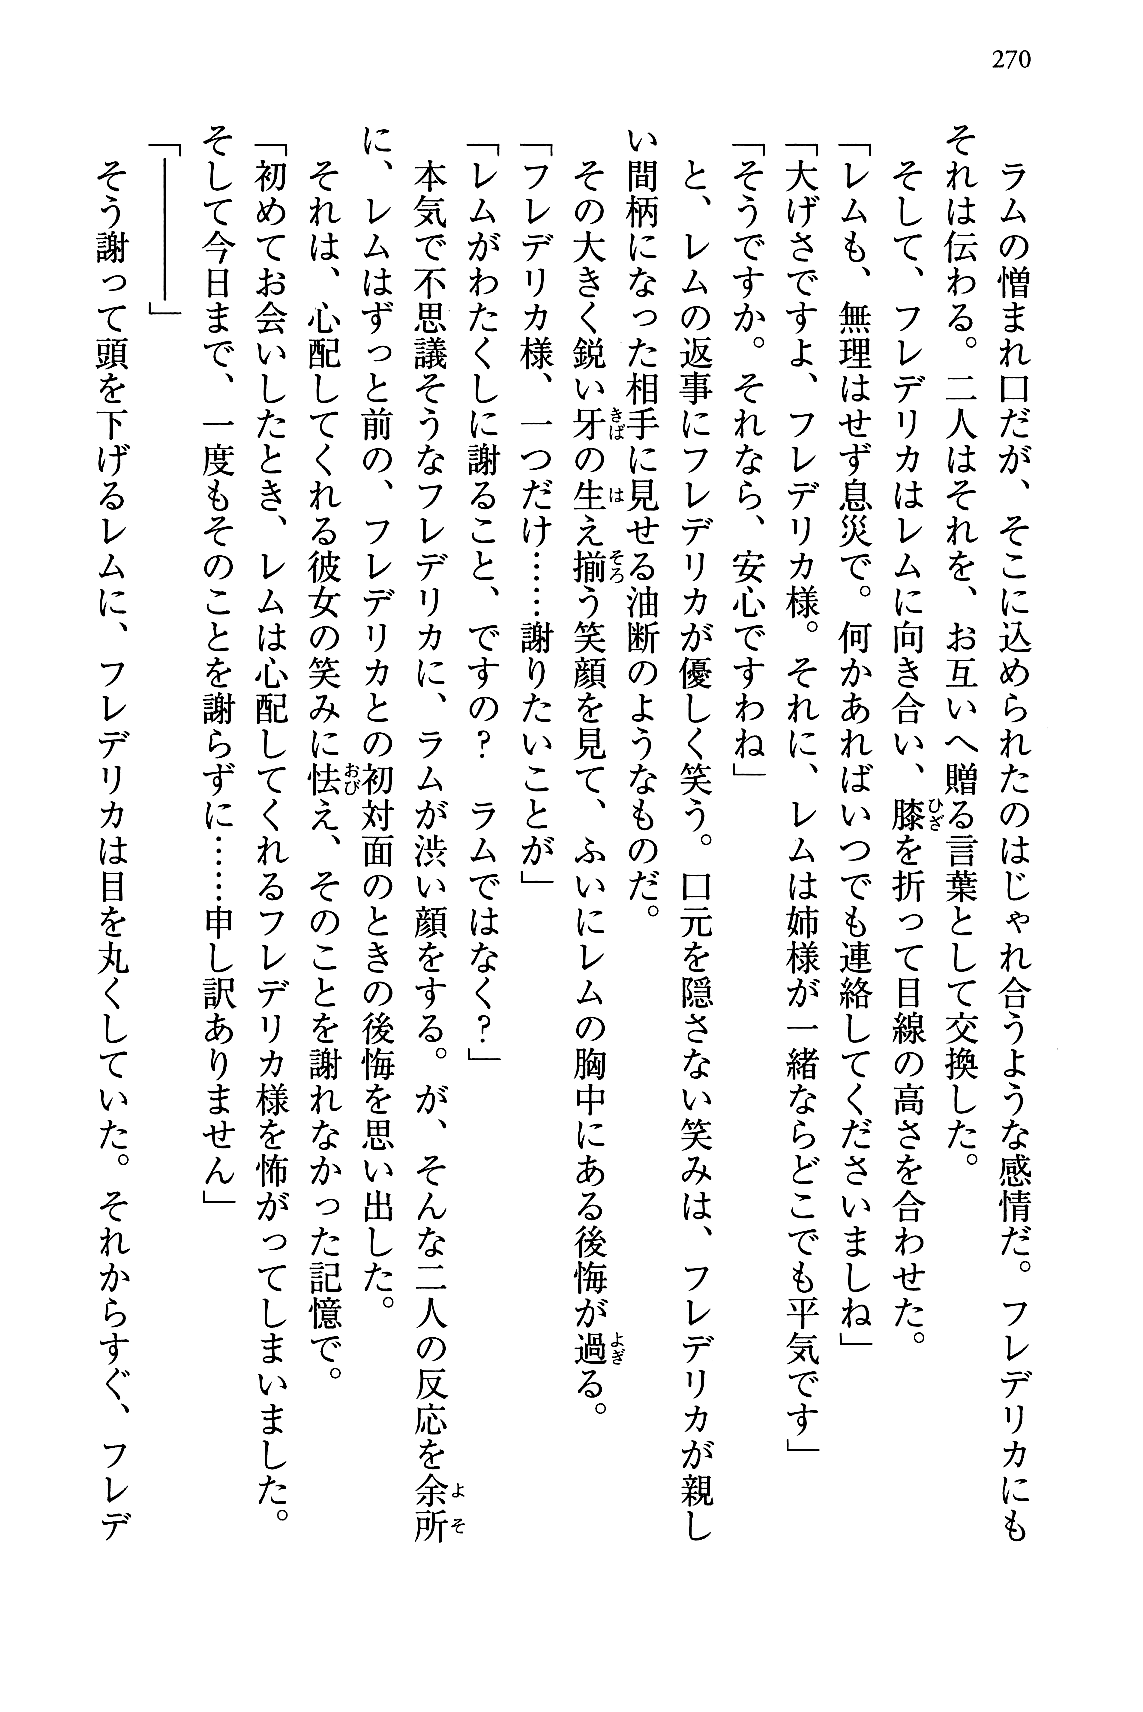 270
ラムの憎まれ口だが、そこに込められたのはじゃれ合うような感情だ。フレデリカにも
それは伝わる。二人はそれを、お互いへ贈る言葉として交換した。
そして、フレデリカはレムに向き合い、膝を折って目線の高さを合わせた。
「レムも、無理はせず息災で。何かあればいつでも連絡してくださいましね」
「大げさですよ、フレデリカ様。それに、レムは姉様が一緒ならどこでも平気です」
「そうですか。それなら、安心ですわね」
と、レムの返事にフレデリカが優しく笑う。口元を隠さない笑みは、フレデリカが親し
い間柄になった相手に見せる油断のようなものだ。
その大きく鋭い牙の生え揃う笑顔を見て、ふいにレムの胸中にある後悔が過る。
「フレデリカ様、一つだけ……謝りたいことが」
「レムがわたくしに謝ること、ですの？　ラムではなく？」
本気で不思議そうなフレデリカに、ラムが渋い顔をする。が、そんな二人の反応を余所
に、レムはずっと前の、フレデリカとの初対面のときの後悔を思い出した。
それは、心配してくれる彼女の笑みに怯え、そのことを謝れなかった記憶で。
「初めてお会いしたとき、レムは心配してくれるフレデリカ様を怖がってしまいました。
そして今日まで、一度もそのことを謝らずに……申し訳ありません」
「――――」
そう謝って頭を下げるレムに、フレデリカは目を丸くしていた。それからすぐ、フレデ